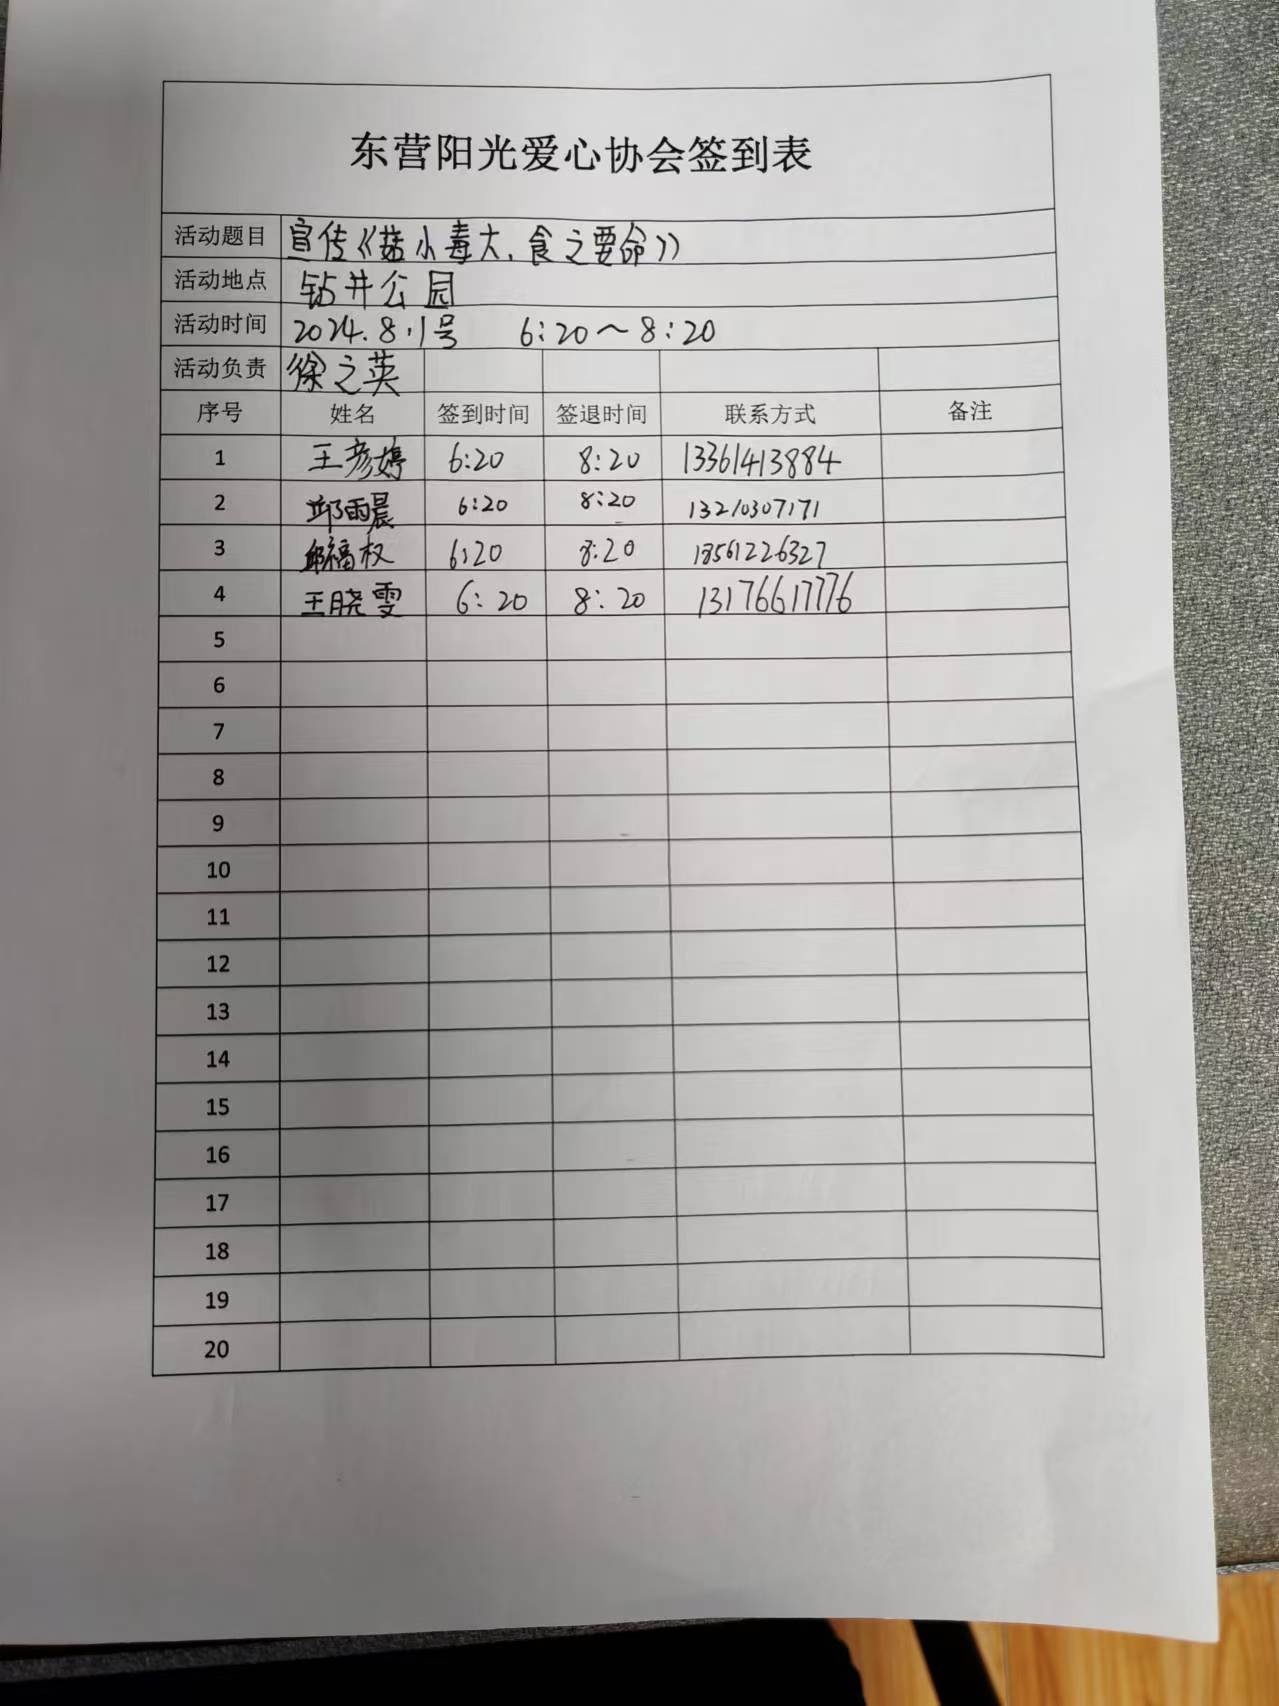 东营阳光爱心协会签到表
活动题目 宣传《菇小毒大,食之要命》
活动地点 钻井公园
活动时间 2024.8.1号 6:20～8:20
活动负责 徐之英
序号 姓名 签到时间 签退时间 联系方式 备注
1 王彦婷 6:20 8:20 13361413884
2 邱雨晨 6:20 8:20 13210307171
3 邱福权 6:20 8:20 18561226327
4 王晓雯 6:20 8:20 13176617776
5
6
7
8
9
10
11
12
13
14
15
16
17
18
19
20